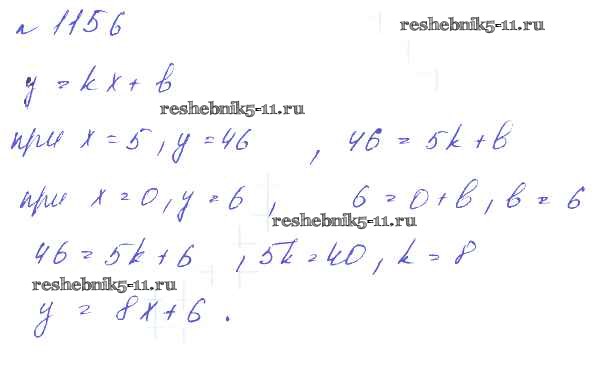 № 1156
reshebnik5-11.ru
y = kx + b
reshebnik5-11.ru
при x = 5, y = 46 , 46 = 5k + b
при x = 0, y = 6 , 6 = 0 + b, b = 6
reshebnik5-11.ru
46 = 5k + 6 , 5k = 40, k = 8
reshebnik5-11.ru
y = 8x + 6 .